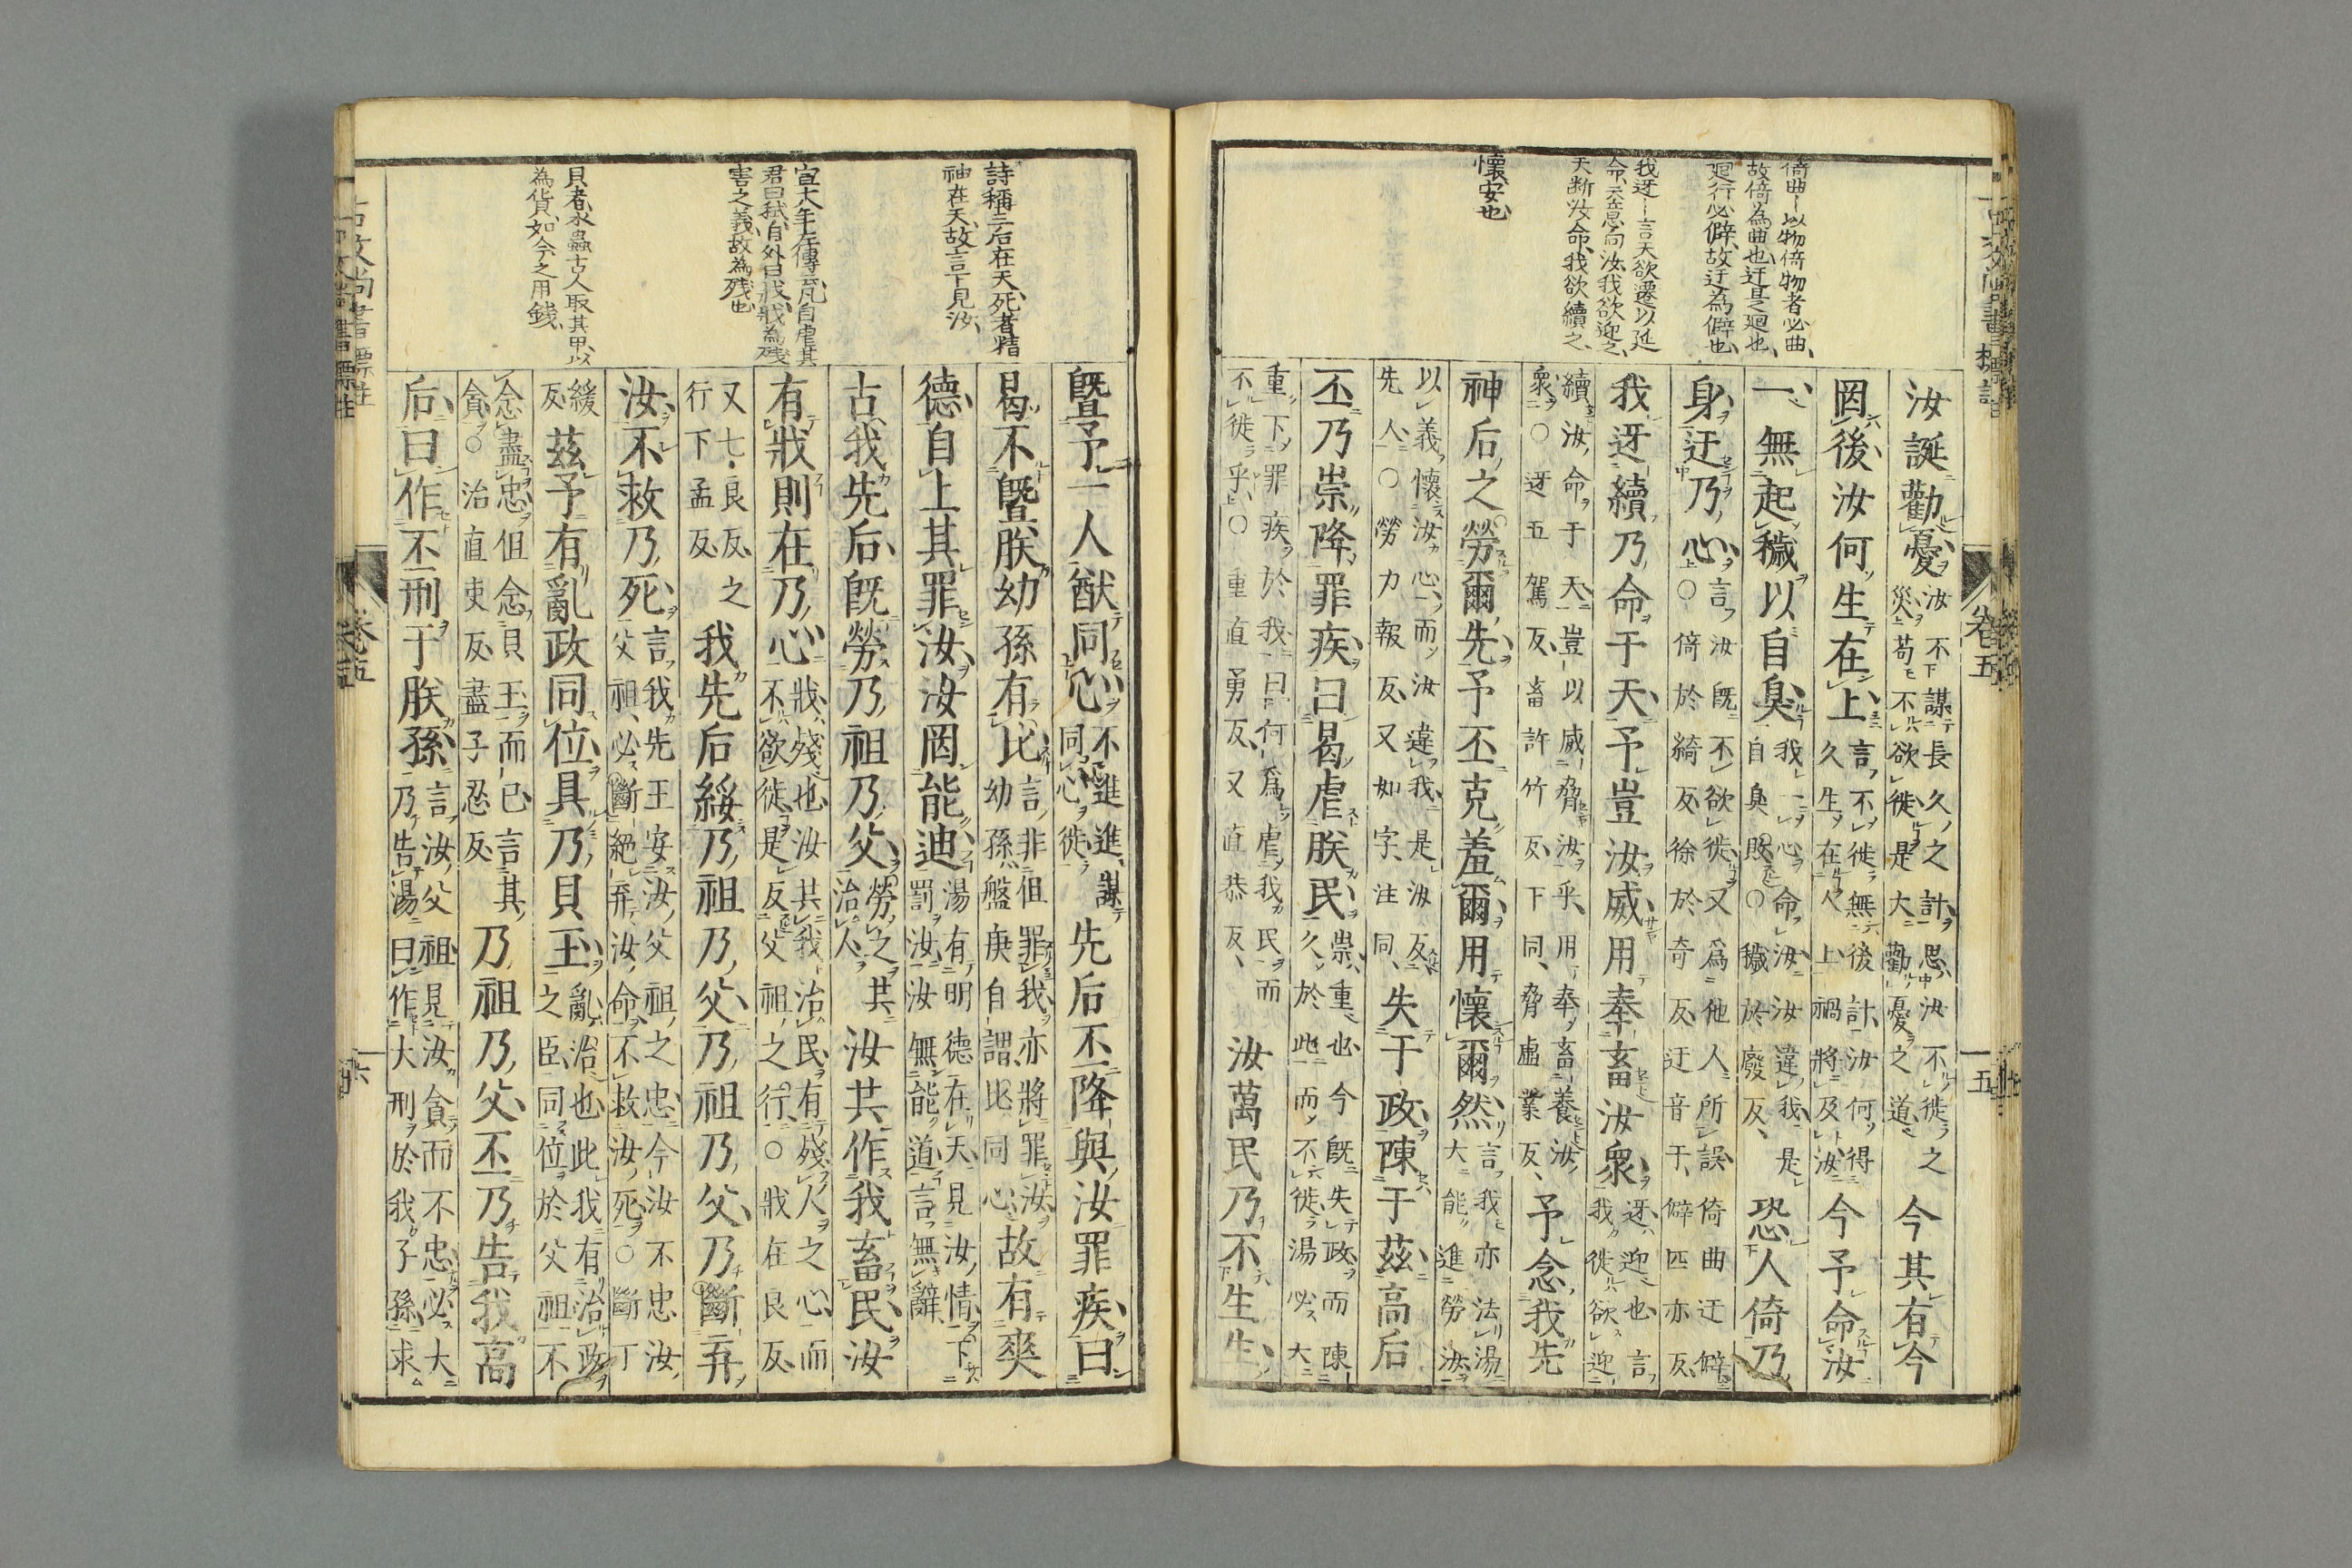 倚曲ー以物倚物者必曲
故倚為曲也迂是廻也
廻行必僻故迂為僻也
我迓ー言天欲遷以延
命天意向汝我欲迎之
天断汝命我欲續之
懷安也
汝誕勸憂汝不謀長久之計思汝不徙之災苟不欲徙是大勸憂之道今其有今
罔後汝何生在上言不徙無後計汝何得久生在人上禍將及汝今予命汝
一無起穢以自臭我一心命汝汝違我是自臭敗〇穢於廢反恐人倚乃
身迂乃心言汝既不欲徙又爲他人所誤倚曲迂僻〇倚於綺反徐於奇反迂音于僻匹亦反
我迓續乃命于天予豈汝威用奉畜汝衆迓迎也言我徙欲迎
續汝命于天豈以威脅汝乎用奉畜養汝衆〇迓五駕反畜許竹反下同脅虛業反予念我先
神后之勞爾先予丕克羞爾用懷爾然言我亦法湯大能進勞汝
以義懷汝心而汝違我是汝反先人〇勞力報反又如字注同失于政陳于茲高后
丕乃崇降罪疾曰曷虐朕民崇重也今既失政而陳久於此而不徙湯必大
重下罪疾於我曰何爲虐我民而不徙乎〇重直勇反又直恭反汝萬民乃不生生
卷五
十五
詩稱三后在天死者精
神在天故言下見汝
宣十八年左傳云凡自虐其
君曰弒自外曰戕戕為殘
害之義故為殘也
貝者水蟲古人取其甲以
為貨如今之用錢
曁予一人猷同心不進進謀同心徙先后丕降與汝罪疾曰
曷不曁朕幼孫有比言非但罪我亦將罪汝幼孫盤庚自謂比同心故有爽
德自上其罰汝汝罔能迪湯有明德在天見汝情下罰汝汝無能道言無辭
古我先后既勞乃祖乃父勞之共治人汝共作我畜民汝
有戕則在乃心戕殘也汝共我治民有殘人之心而不欲徙是反父祖之行〇戕在良反
又七良反行下孟反之我先后綏乃祖乃父乃祖乃父乃斷弃
汝不救乃死言我先王安汝父祖之忠今汝不忠汝父祖必斷絶弃汝命不救汝死〇斷丁
緩反茲予有亂政同位具乃貝玉亂治也此我有治政之臣同位於父祖不
念盡忠但念貝玉而已言其貪〇治直吏反盡子忍反乃祖乃父丕乃告我高
后曰作丕刑于朕孫言汝父祖見汝貪而不忠必大乃告湯曰作大刑於我子孫求
古文尚書標註
卷五